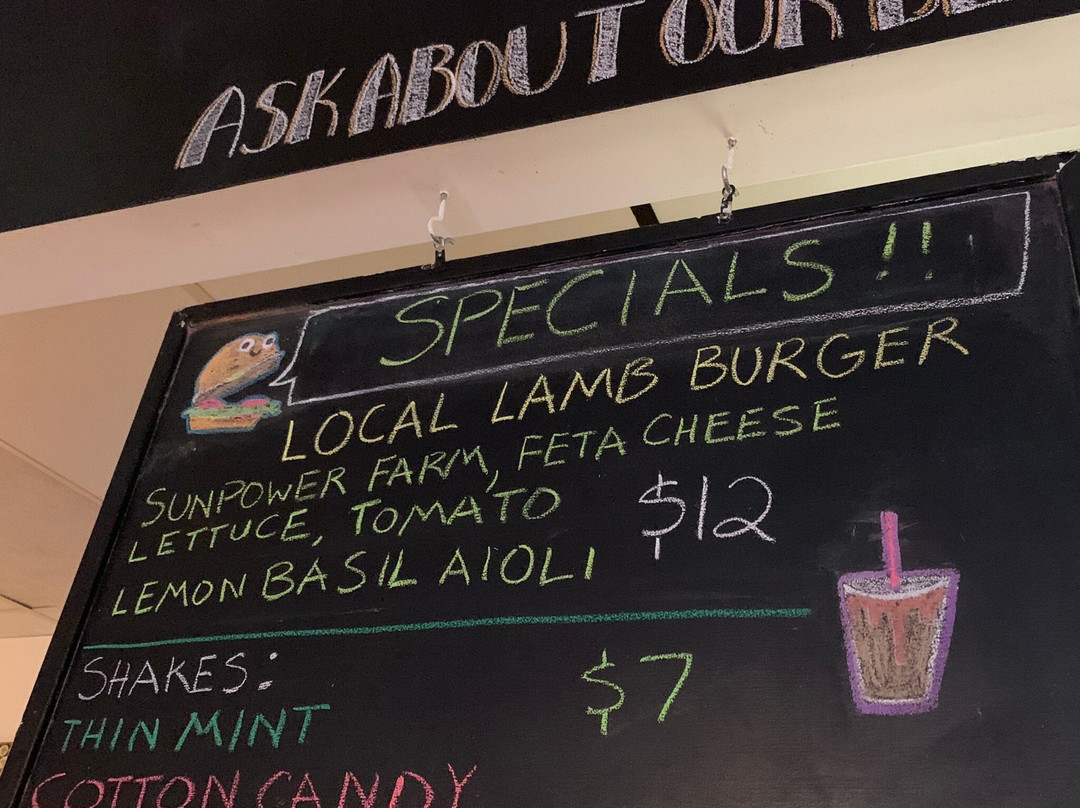 ASK ABOUT OUR
SPECIALS!!
LOCAL LAMB BURGER
SUNPOWER FARM, FETA CHEESE
LETTUCE, TOMATO $12
LEMON BASIL AIOLI
SHAKES: $7
THIN MINT
COTTON CANDY